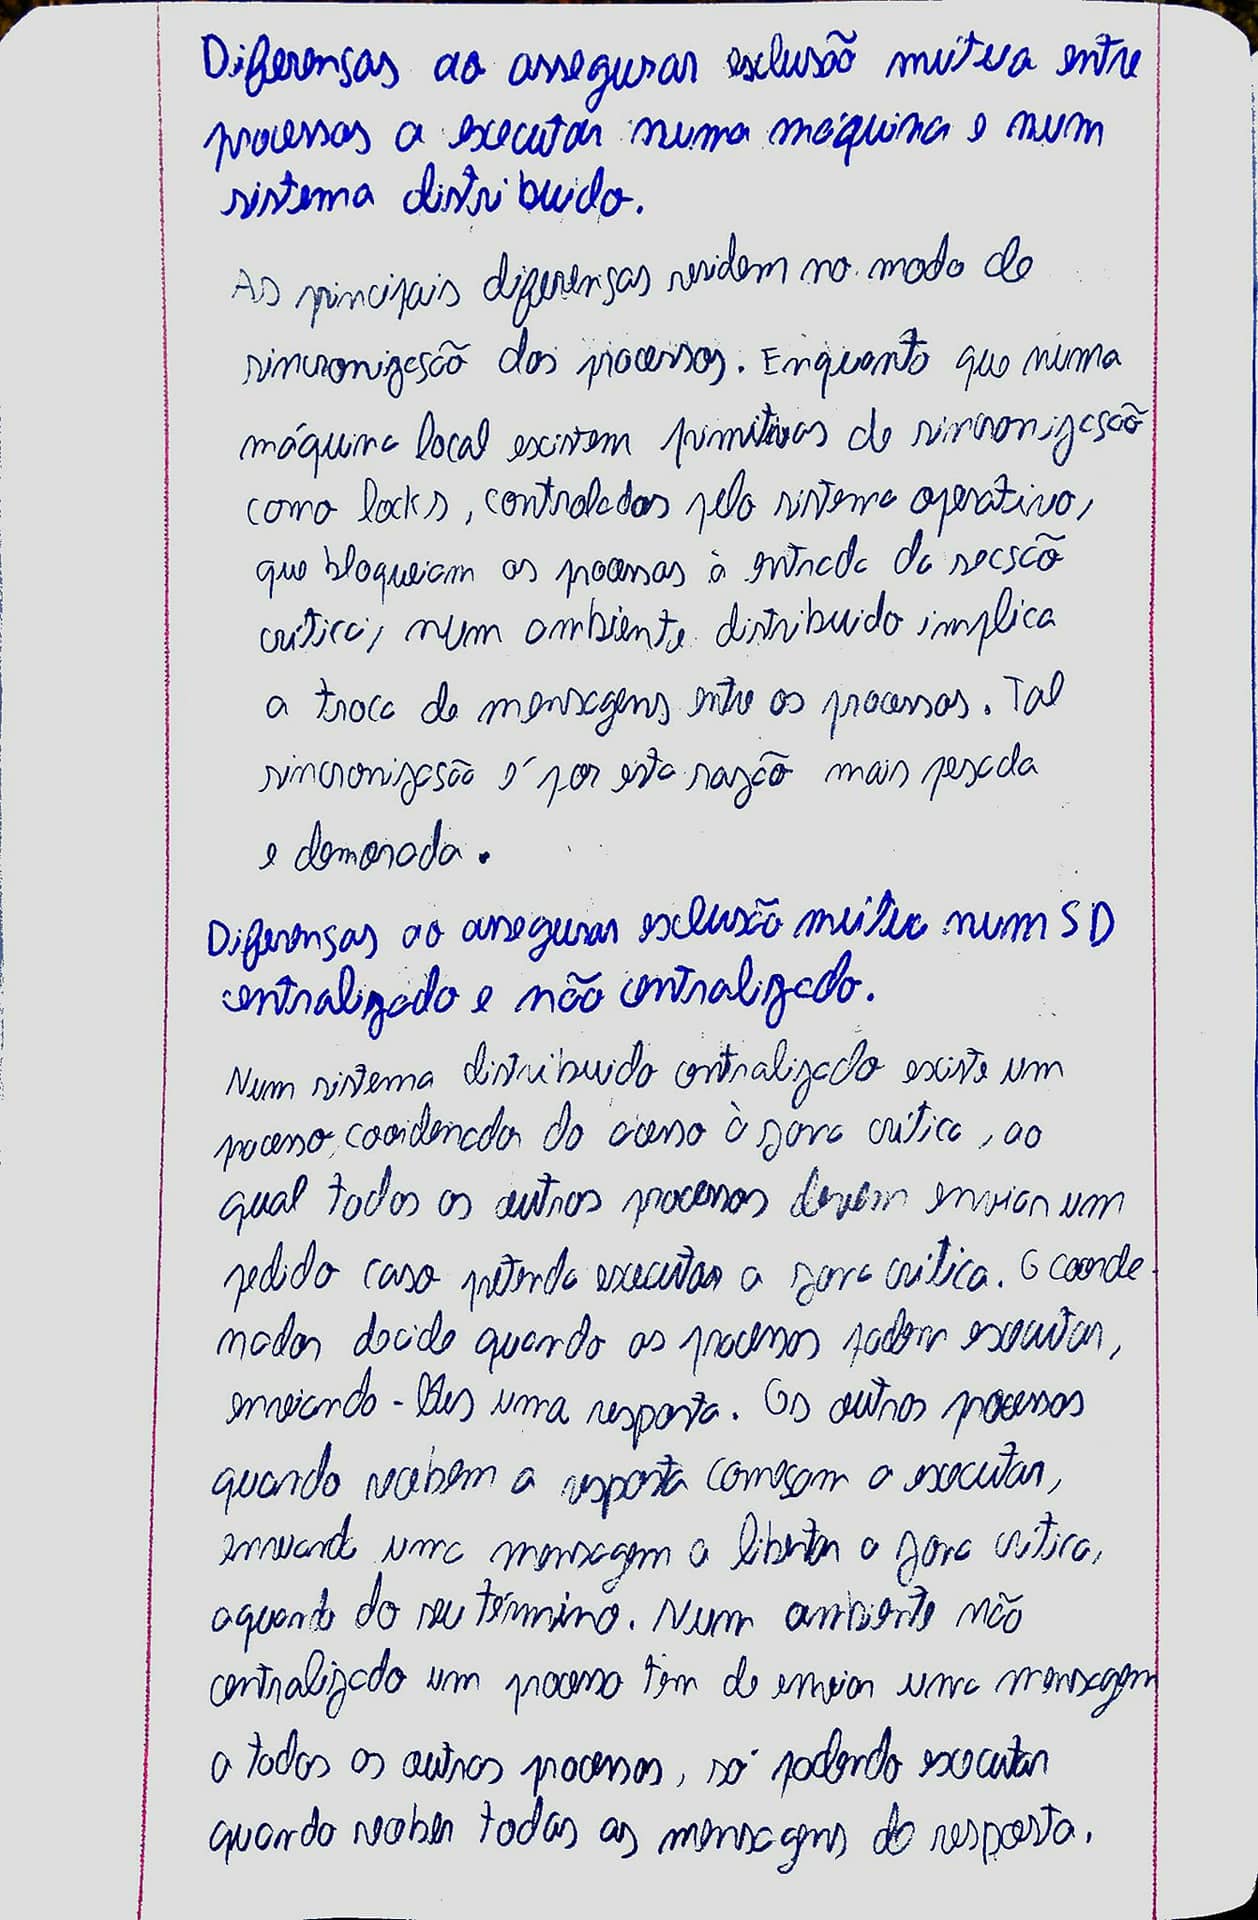 Diferenças ao assegurar exclusão mútua entre
processos a executar numa máquina e num
sistema distribuido.
As principais diferenças residem no modo de
sincronização dos processos. Enquanto que numa
máquina local existem primitivas de sincronização
como locks, controladas pelo sistema operativo,
que bloqueiam os processos à entrada da secção
crítica, num ambiente distribuido implica
a troca de mensagens entre os processos. Tal
sincronização é por esta razão mais pesada
e demorada.
Diferenças ao assegurar exclusão mútua num SD
centralizado e não centralizado.
Num sistema distribuido centralizado existe um
processo coordenador do acesso à zona crítica, ao
qual todos os outros processos devem enviar um
pedido caso pretenda executar a zona crítica. O coorde-
nador decide quando os processos podem executar,
enviando-lhes uma resposta. Os outros processos
quando recebem a resposta começam a executar,
enviando uma mensagem a libertar a zona crítica,
aquando do seu término. Num ambiente não
centralizado um processo tem de enviar uma mensagem
a todos os outros processos, só podendo executar
quando receber todas as mensagens de resposta.